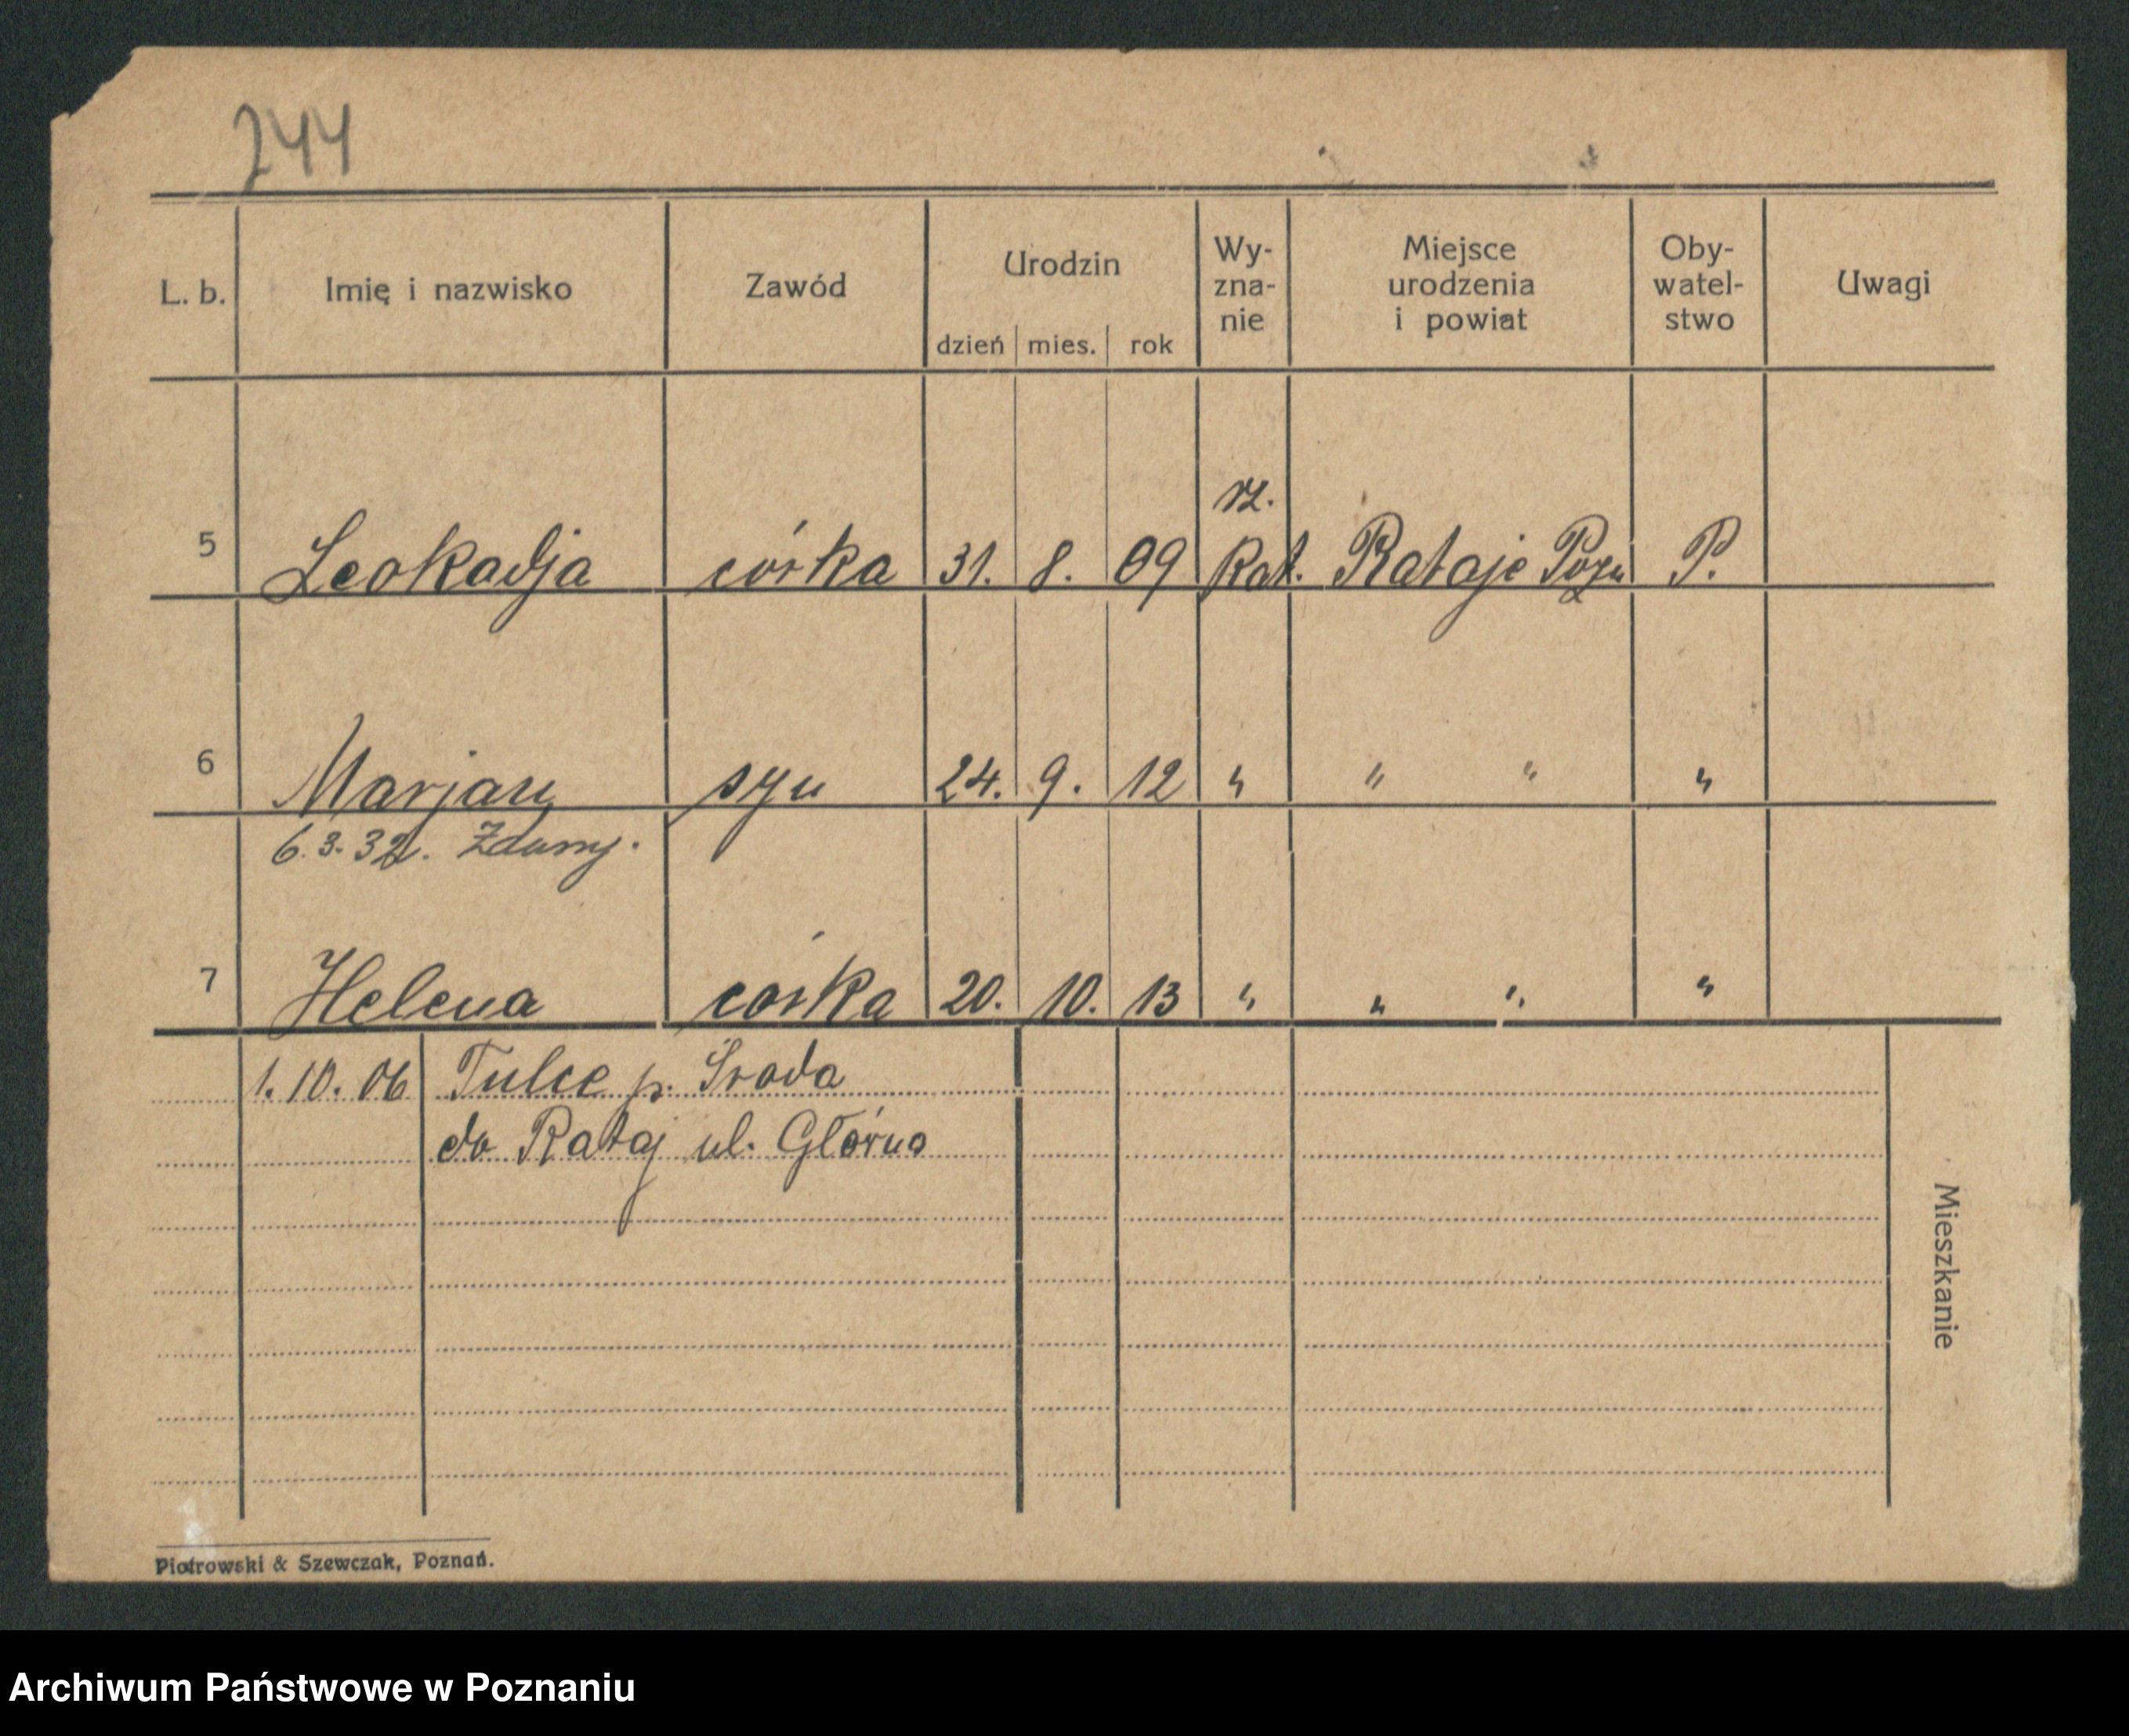 244
L. b. Imię i nazwisko Zawód Urodzin dzień mies. rok Wy-zna-nie Miejsce urodzenia i powiat Oby-watel-stwo Uwagi
5 Leokadja córka 31. 8. 09 rz. Kat. Rataje Pozn P.
6 Marjan syn 24. 9. 12 " " " "
6.3.32. Zduny.
7 Helena córka 20. 10. 13 " " " "
1.10.06 Tulce p. Środa
do Rataj ul. Główna
Mieszkanie
Piotrowski & Szewczak, Poznań.
Archiwum Państwowe w Poznaniu